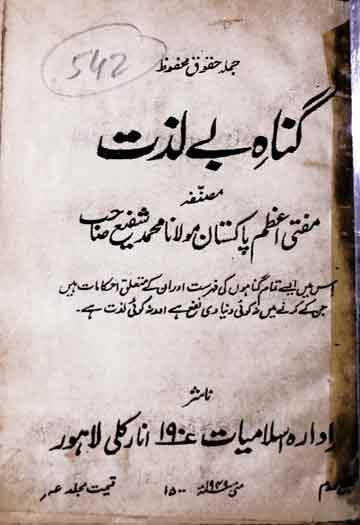 جملہ حقوق محفوظ
542
گناہِ بے لذت
مصنّفہ
مفتی اعظم پاکستان مولانا محمد شفیع صاحب
اس میں ایسے تمام گناہوں کی فہرست اور ان کے متعلق احکامات ہیں
جن کے کرنے میں نہ کوئی دنیاوی نفع ہے اور نہ کوئی لذت ہے۔
ناشر
ادارہ اسلامیات ۱۹۰ انار کلی لاہور
مئی ۱۵۰۰ قیمت مجلد